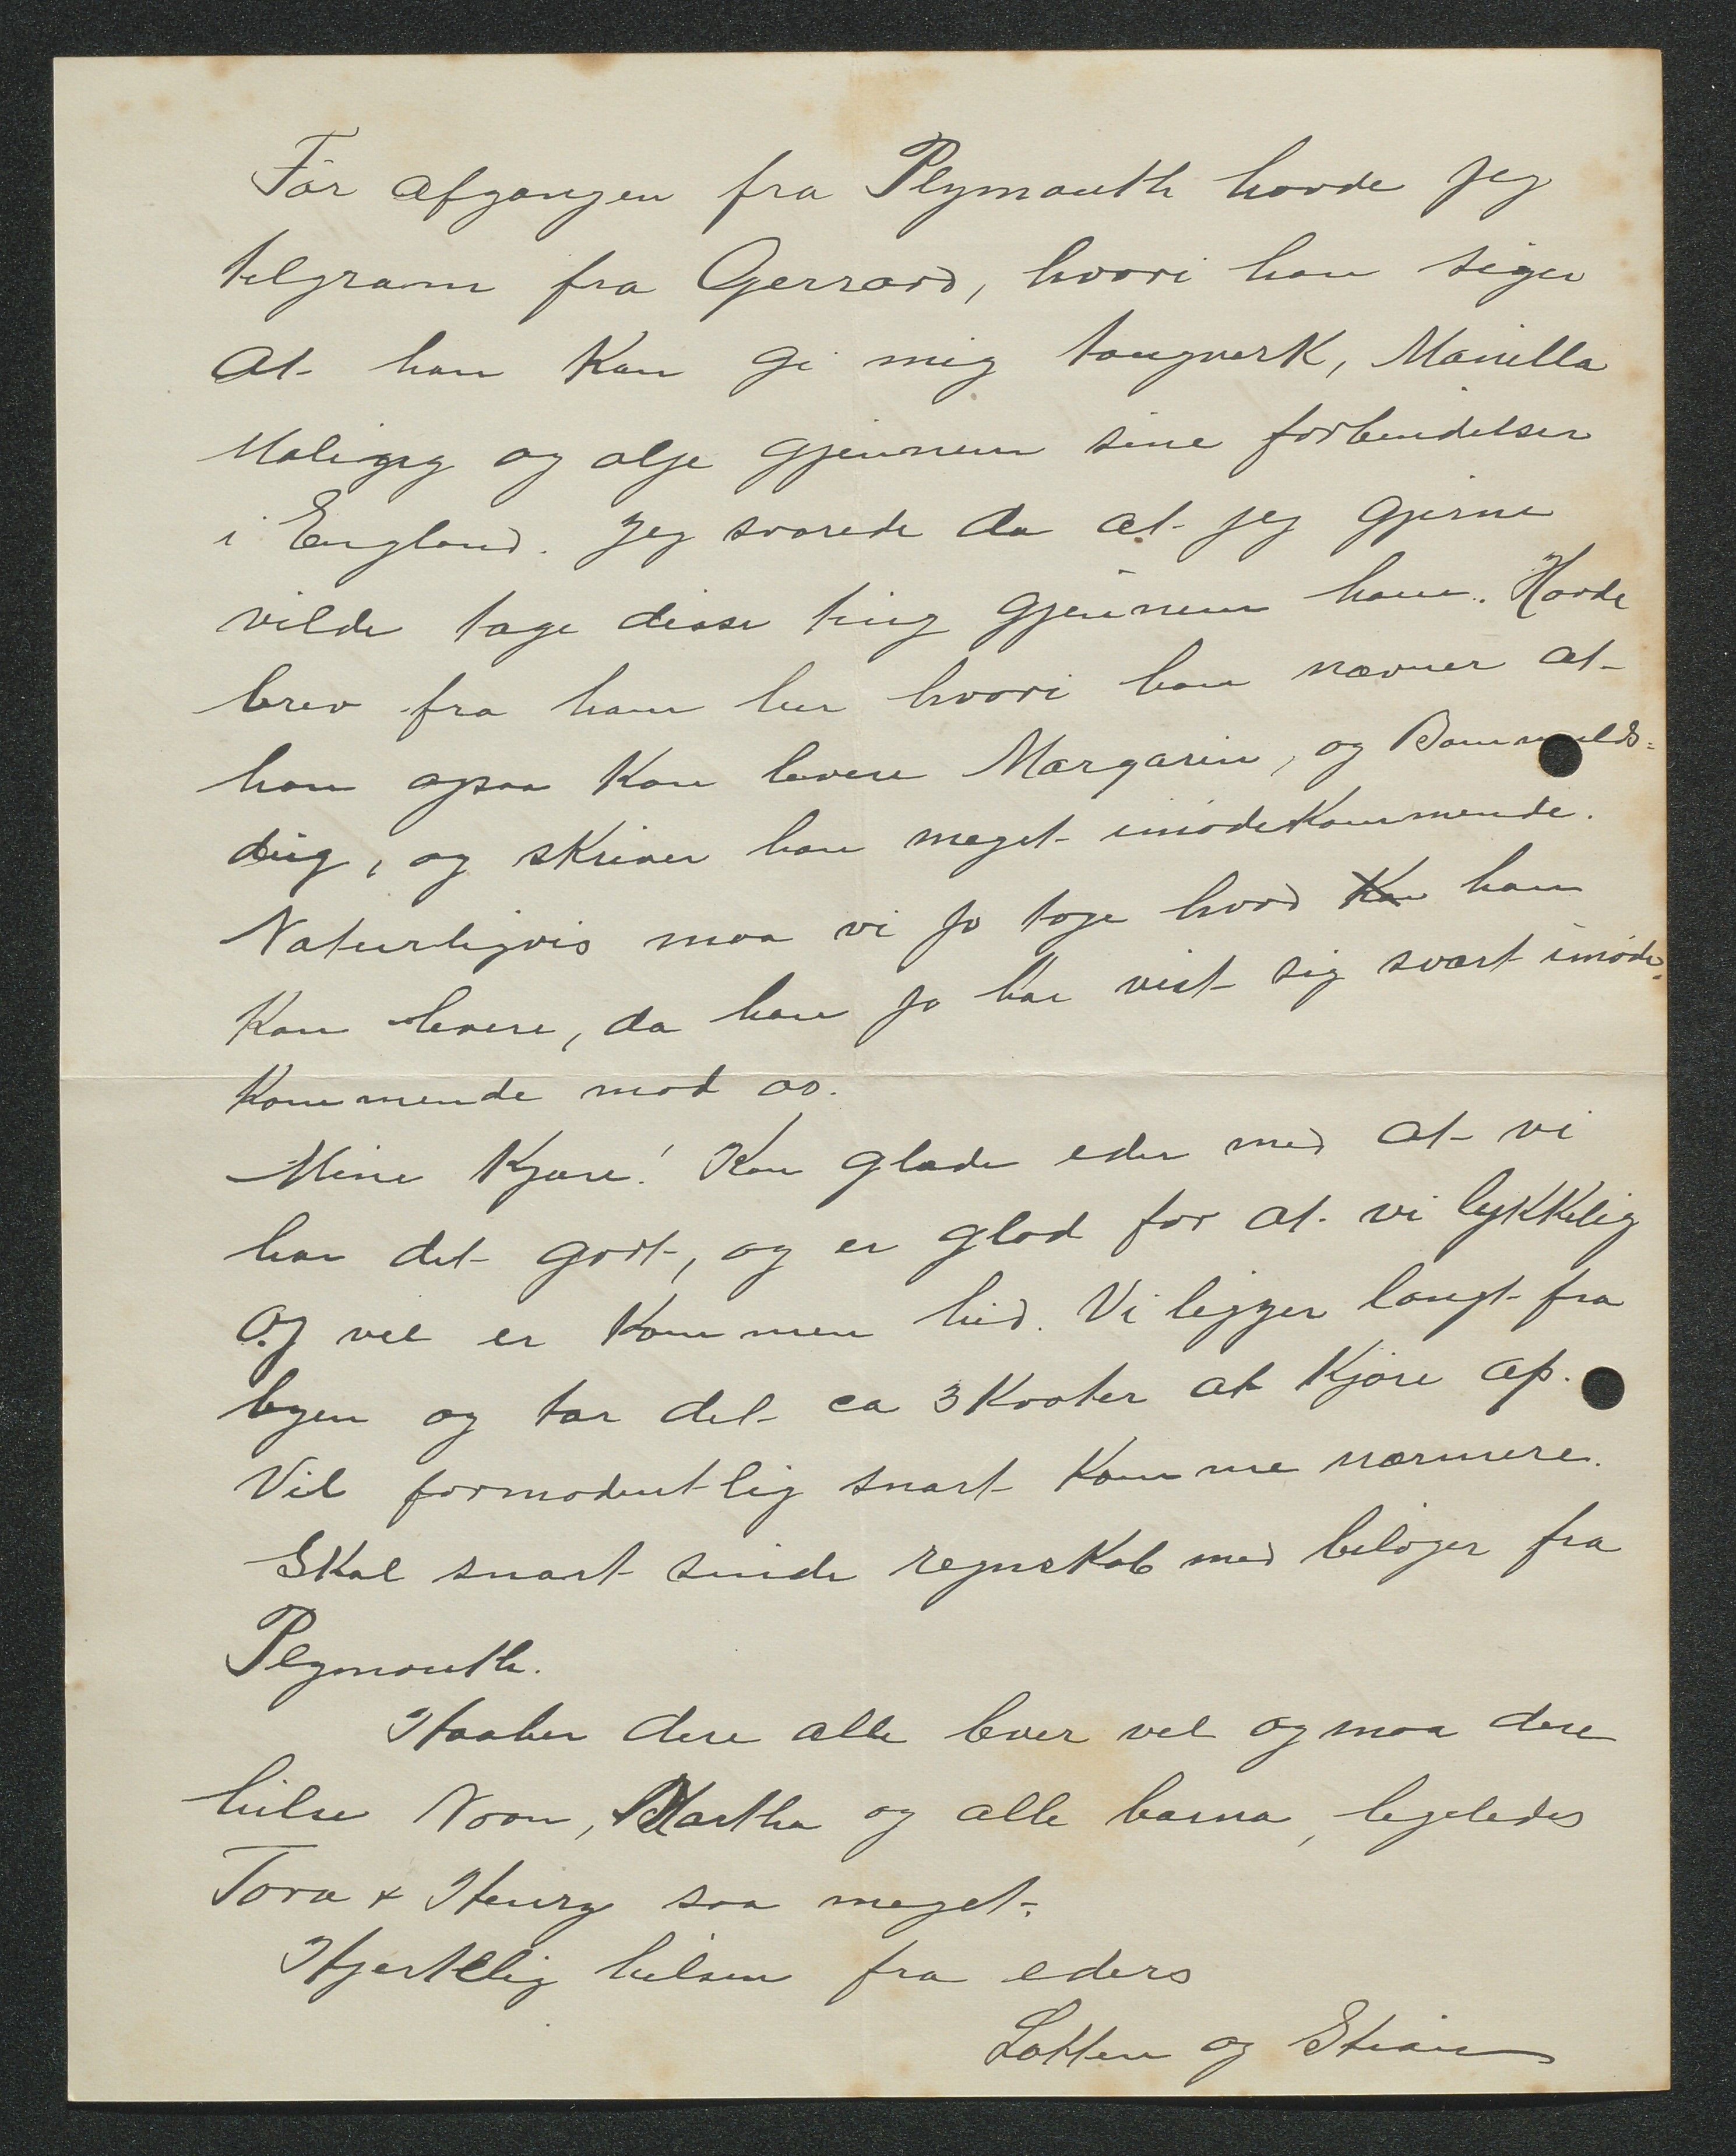 Før afgangen fra Plymouth havde jeg
telgram fra Gerrard, hvori han siger
at han kan gi mig taugverk, Manilla
Maling og olje gjennem sine forbindelser
i England. Jeg svarede da at jeg gjerne
vilde tage disse ting gjennem ham. Havde
brev fra ham her hvori han nævner at
han ogsaa kan levere Margarin, og Bommulds=
dug, og skriver han meget imødekommende.
Naturligvis maa vi jo tage hvad kan ham
kan levere, da han jo har vist sig svært imøde=
kommende mod os.
Mine Kjære! Kan glæde eder med at vi
har det godt, og er glad for at vi lykkelig
og vel er kommen hid. Vi ligger langt fra
byen og tar det ca 3 Kvater at kjøre op.
Vil formodentlig snart komme nærmere.
Skal snart sende regnskab med bilager fra
Plymouth.
Haaber dere alle lever vel og maa dere
hilse Martha og alle barna, ligeledes
Tora & Henry saa meget.
Hjertelig hilsen fra eders
Lotten og Stian